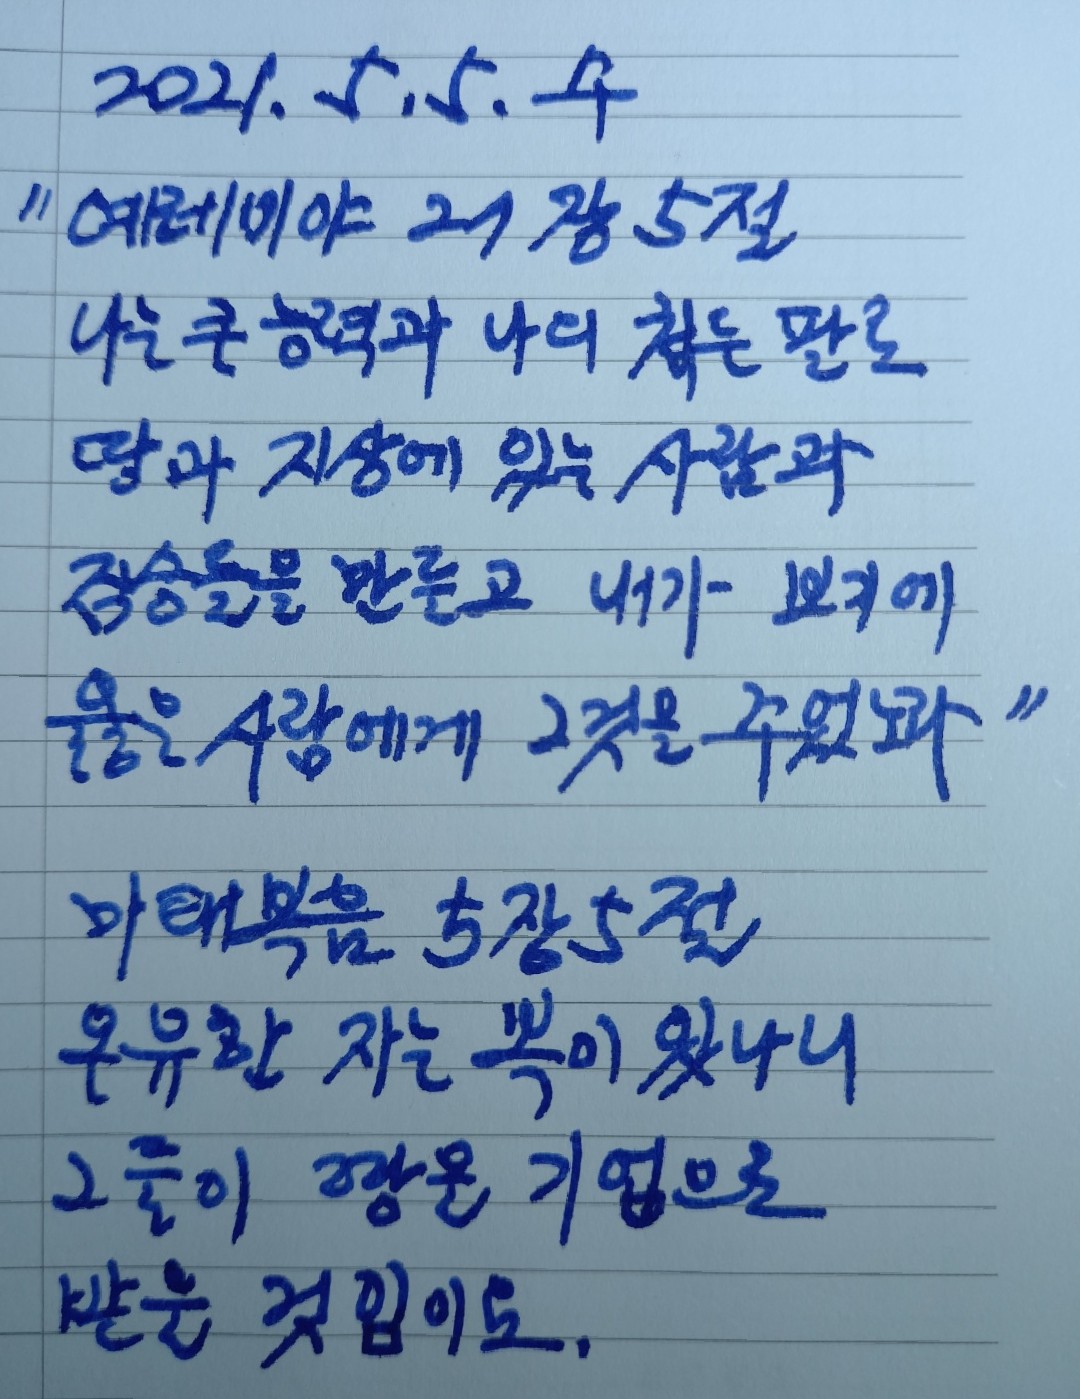 2021. 5. 5. 수
"예레미야 27장 5절
나는 큰 능력과 나의 쳡든 팔로
땅과 지상에 있는 사람과
짐승들을 만들고 내가 보기에
옳은 사람에게 그것을 주었노라"
마태복음 5장 5절
온유한 자는 복이 있나니
그들이 땅을 기업으로
받을 것임이요.